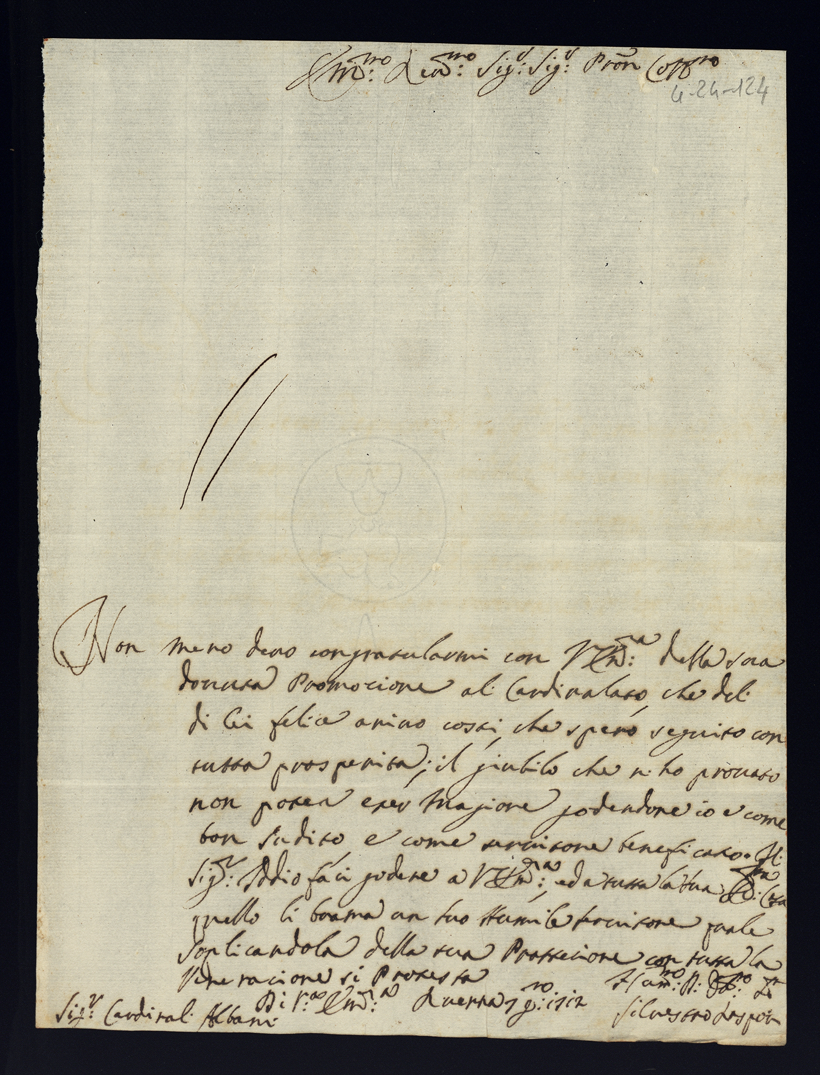 Em.mo Re.mo Sig.r Sig.r Pron Col.mo
4-24-124
Non meno devo congratularmi con V. Em.za della sua
dovuta Promocione al Cardinalato, che del
di lei felice arivo cossì, che spero seguito con
tutta prosperita; il giubilo che n ho provato
non potea eser magiore godendone io e come
bon Sudito e come servitore beneficato. Il
Sig.r Iddio faci godere a V. Em.za, ed a tutta la sua Casa
quello li brama un suo Humile servitore quale
Suplicandola della sua Protecione con tutta la
Veneracione si Protesta
Di V.a Em.za 1712
Silvestro
Sig.r Cardinal Albani